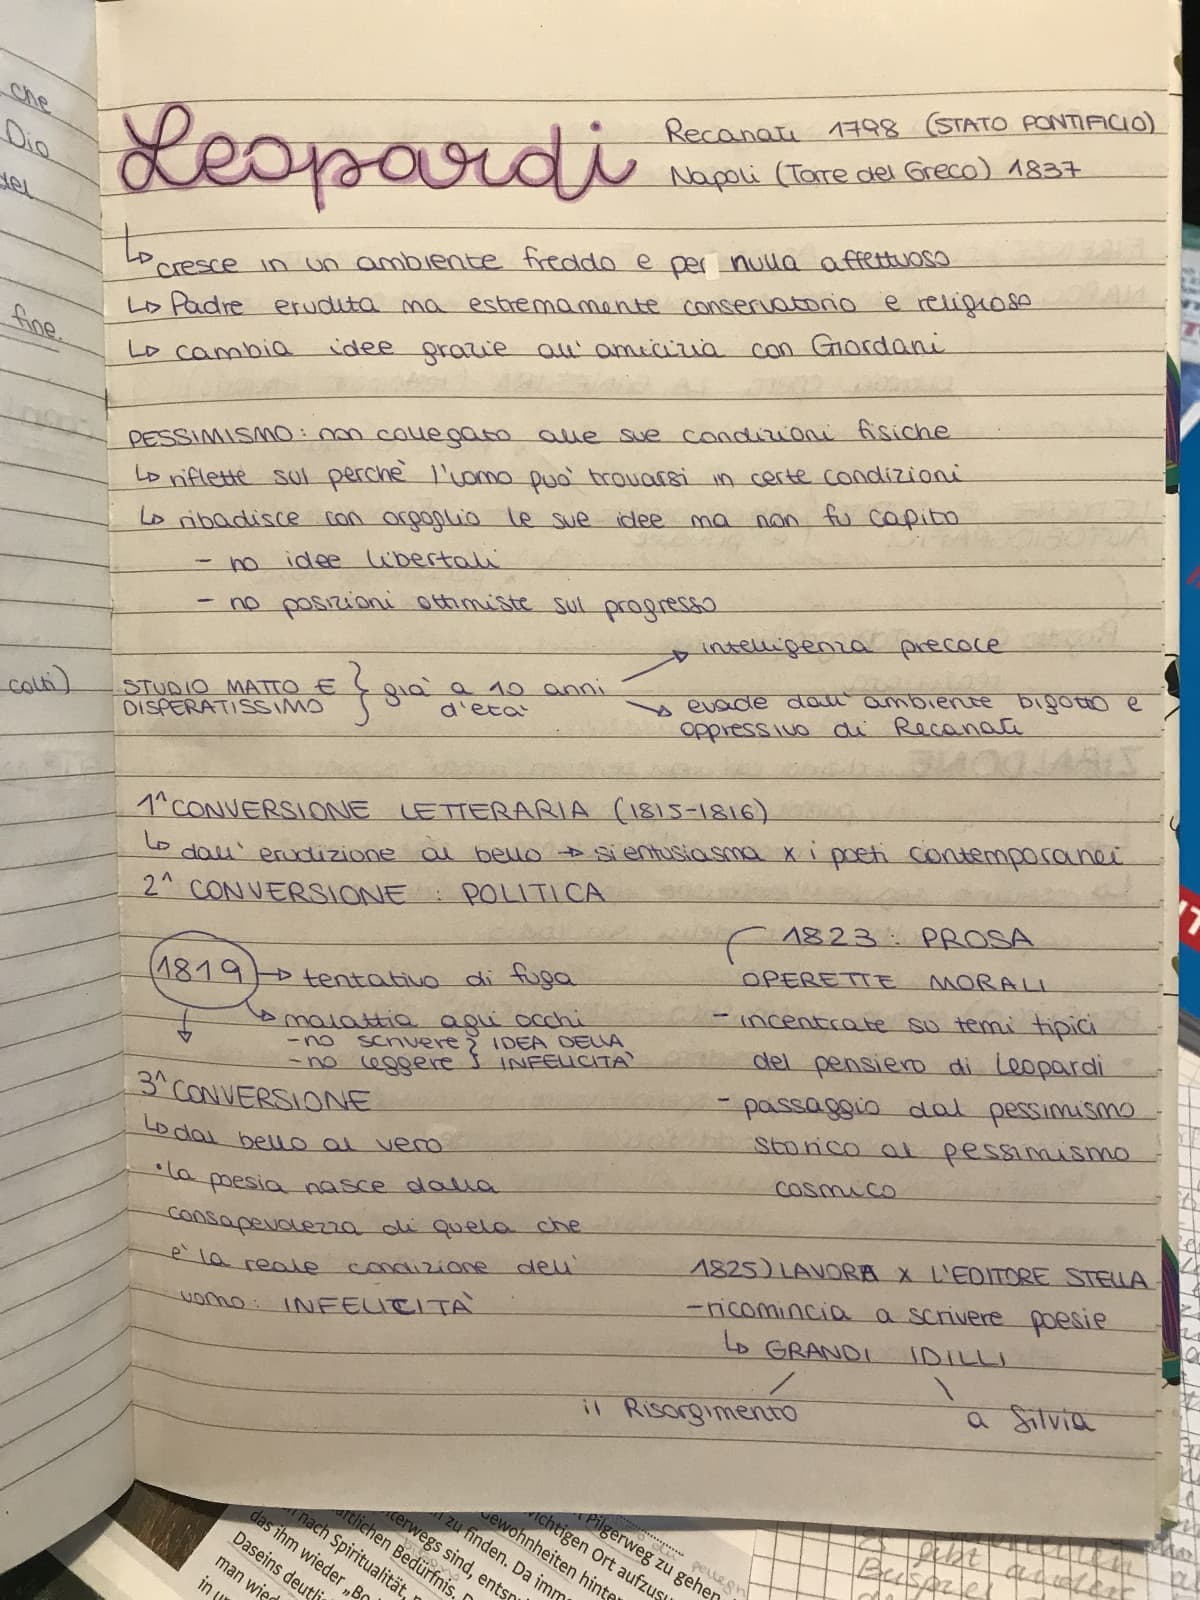 che
Dio
del
fine.
colti)
Leopardi
Recanati 1798 (STATO PONTIFICIO)
Napoli (Torre del Greco) 1837
↳ cresce in un ambiente freddo e per nulla affettuoso
↳ Padre erudita ma estremamente conservatorio e religioso
↳ cambia idee grazie all'amicizia con Giordani
PESSIMISMO: non collegato alle sue condizioni fisiche
↳ riflette sul perchè l'uomo può trovarsi in certe condizioni
↳ ribadisce con orgoglio le sue idee ma non fu capito
- no idee libertali
- no posizioni ottimiste sul progresso
STUDIO MATTO E
DISPERATISSIMO } già a 10 anni
d'età
→ intelligenza precoce
→ evade dall'ambiente bigotto e
oppressivo di Recanati
1^ CONVERSIONE LETTERARIA (1815-1816)
↳ dall'erudizione al bello → si entusiasma x i poeti contemporanei
2^ CONVERSIONE: POLITICA
1819 → tentativo di fuga
↳ malattia agli occhi
- no scrivere } IDEA DELLA
- no leggere } INFELICITÀ
3^ CONVERSIONE
↳ dal bello al vero
• la poesia nasce dalla
consapevolezza di quela che
è la reale condizione dell'
uomo: INFELICITÀ
1823: PROSA
OPERETTE MORALI
- incentrate su temi tipici
del pensiero di Leopardi
- passaggio dal pessimismo
storico al pessimismo
cosmico
1825) LAVORA x L'EDITORE STELLA
- ricomincia a scrivere poesie
↳ GRANDI IDILLI
il Risorgimento
a Silvia
Pilgerweg zu gehen
wichtigen Ort aufzusu
Gewohnheiten hinte
zu finden. Da imm
terwegs sind, entsp
rtlichen Bedürfnis.
nach Spiritualität,
das ihm wieder „Bo
Daseins deutli
man wied
in u
gibt andere
Beispiel